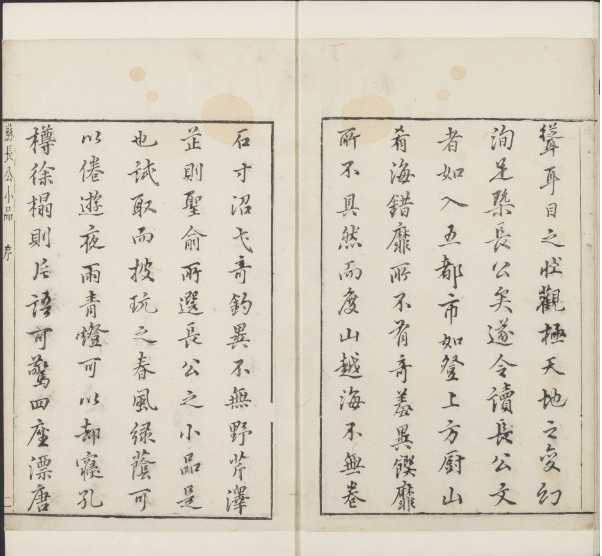 聳耳目之壯觀極天地之變幻
洵足槩長公矣遂令讀長公文
者如入五都市如登上方厨山
肴海錯靡所不有奇羞異饌靡
所不具然而度山越海不無卷
石寸沼弋奇釣異不無野芹澤
芷則聖俞所選長公之小品是
也試取而披玩之春風綠蔭可
以倦遊夜雨青燈可以却寢孔
樽徐榻則片語可驚四座漂唐
蘇長公小品 序 二